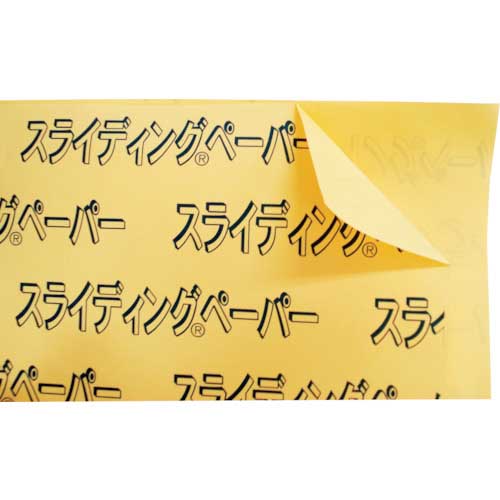 スライディングペーパー®
グ®ペーパー スライディング®ペ
スライディングペーパー® スライ
グペーパー スライディング